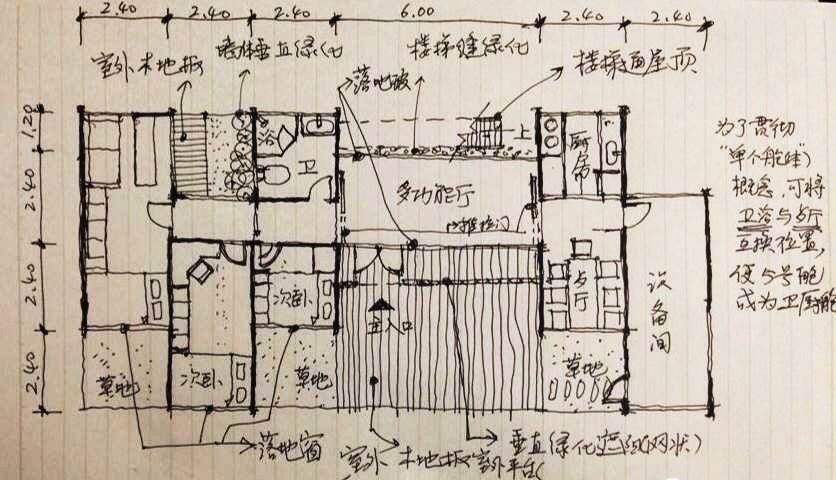 2.40 2.40 2.40 6.00 2.40 2.40
室外木地板
墙体垂直绿化
楼梯缝绿化
落地玻
楼梯通屋顶
1.20
2.40
2.40
2.40
浴
卫
上
厨房
多功能厅
推拉门
次卧
主入口
餐厅
设备间
草地
次卧
草地
草地
落地窗
室外木地板
室外平台
垂直绿化遮阳(网状)
为了贯彻
“单个舱娃”
概念,可将
卫浴与餐厅
互换位置,
使5号舱
成为卫厨舱